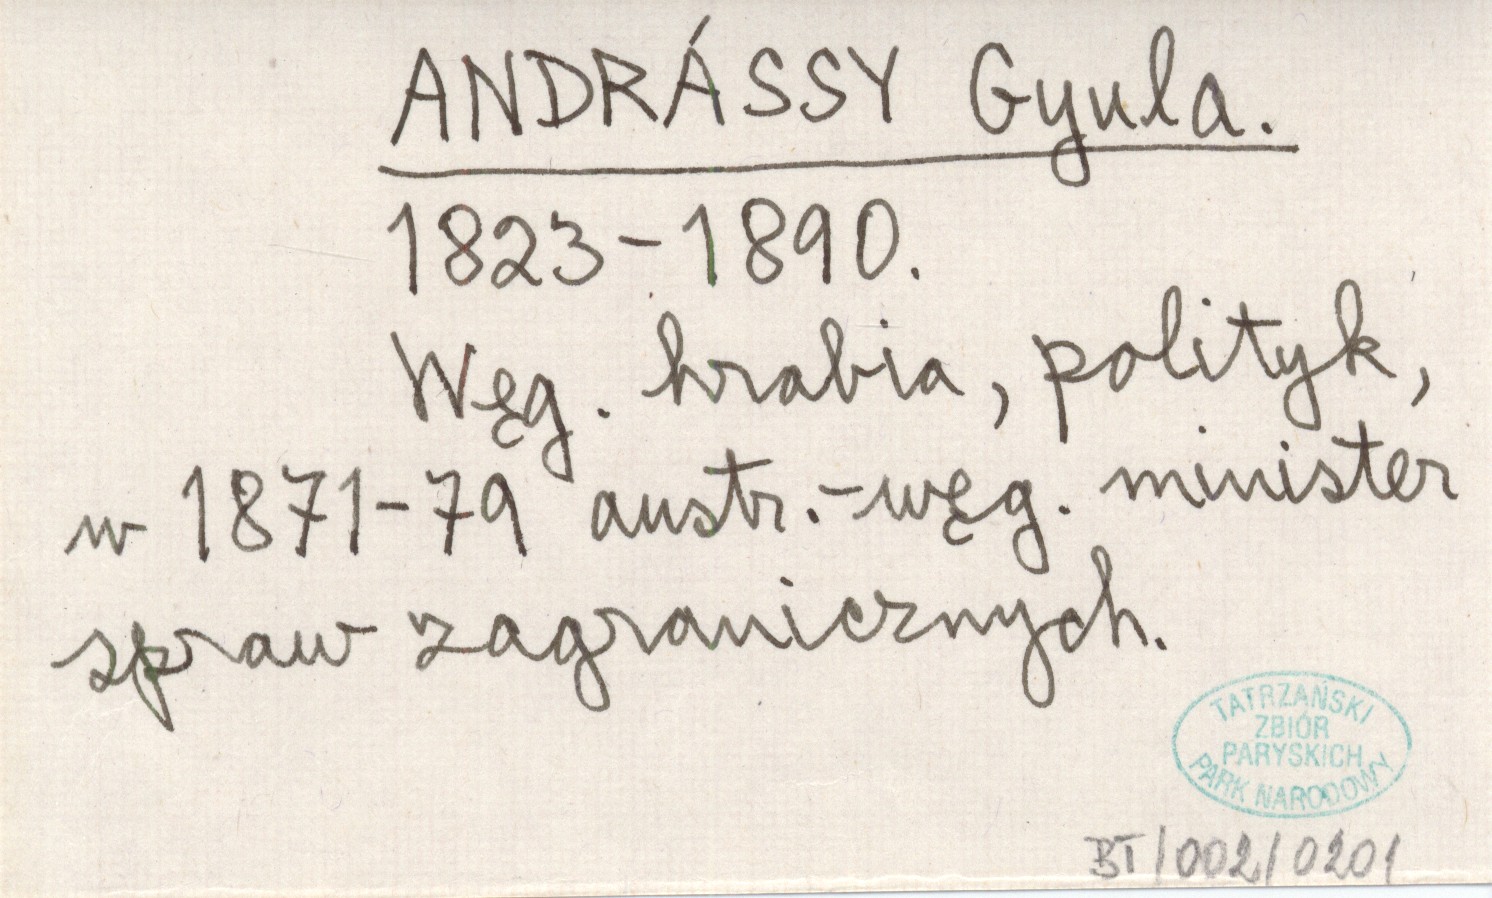 ANDRÁSSY Gyula.
1823-1890.
Węg. hrabia, polityk,
w 1871-79 austr.-węg. minister
spraw zagranicznych.
TATRZAŃSKI
ZBIÓR
PARYSKICH
PARK NARODOWY
BT/002/0201